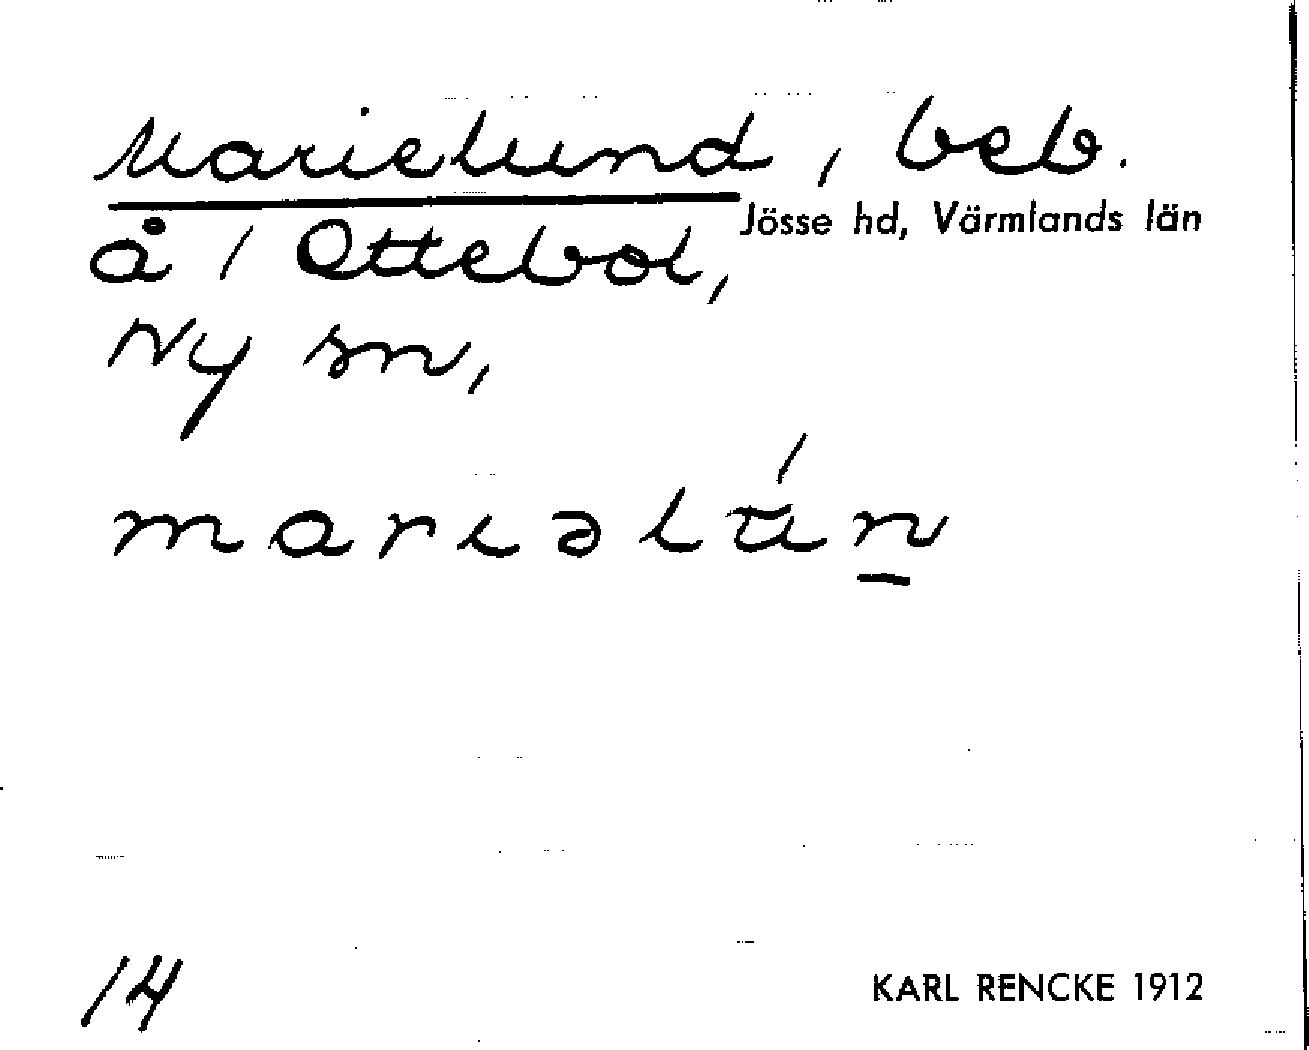 Marielund, beb.
Jösse hd, Värmlands län
å / Ottebol,
Ny sn,
marıəlú̄n̲
14
KARL RENCKE 1912